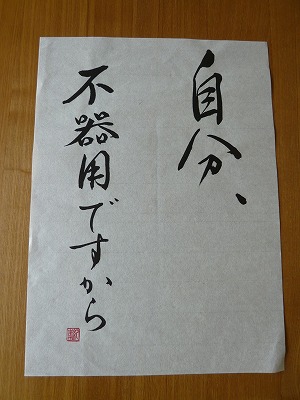 自分、
不器用ですから